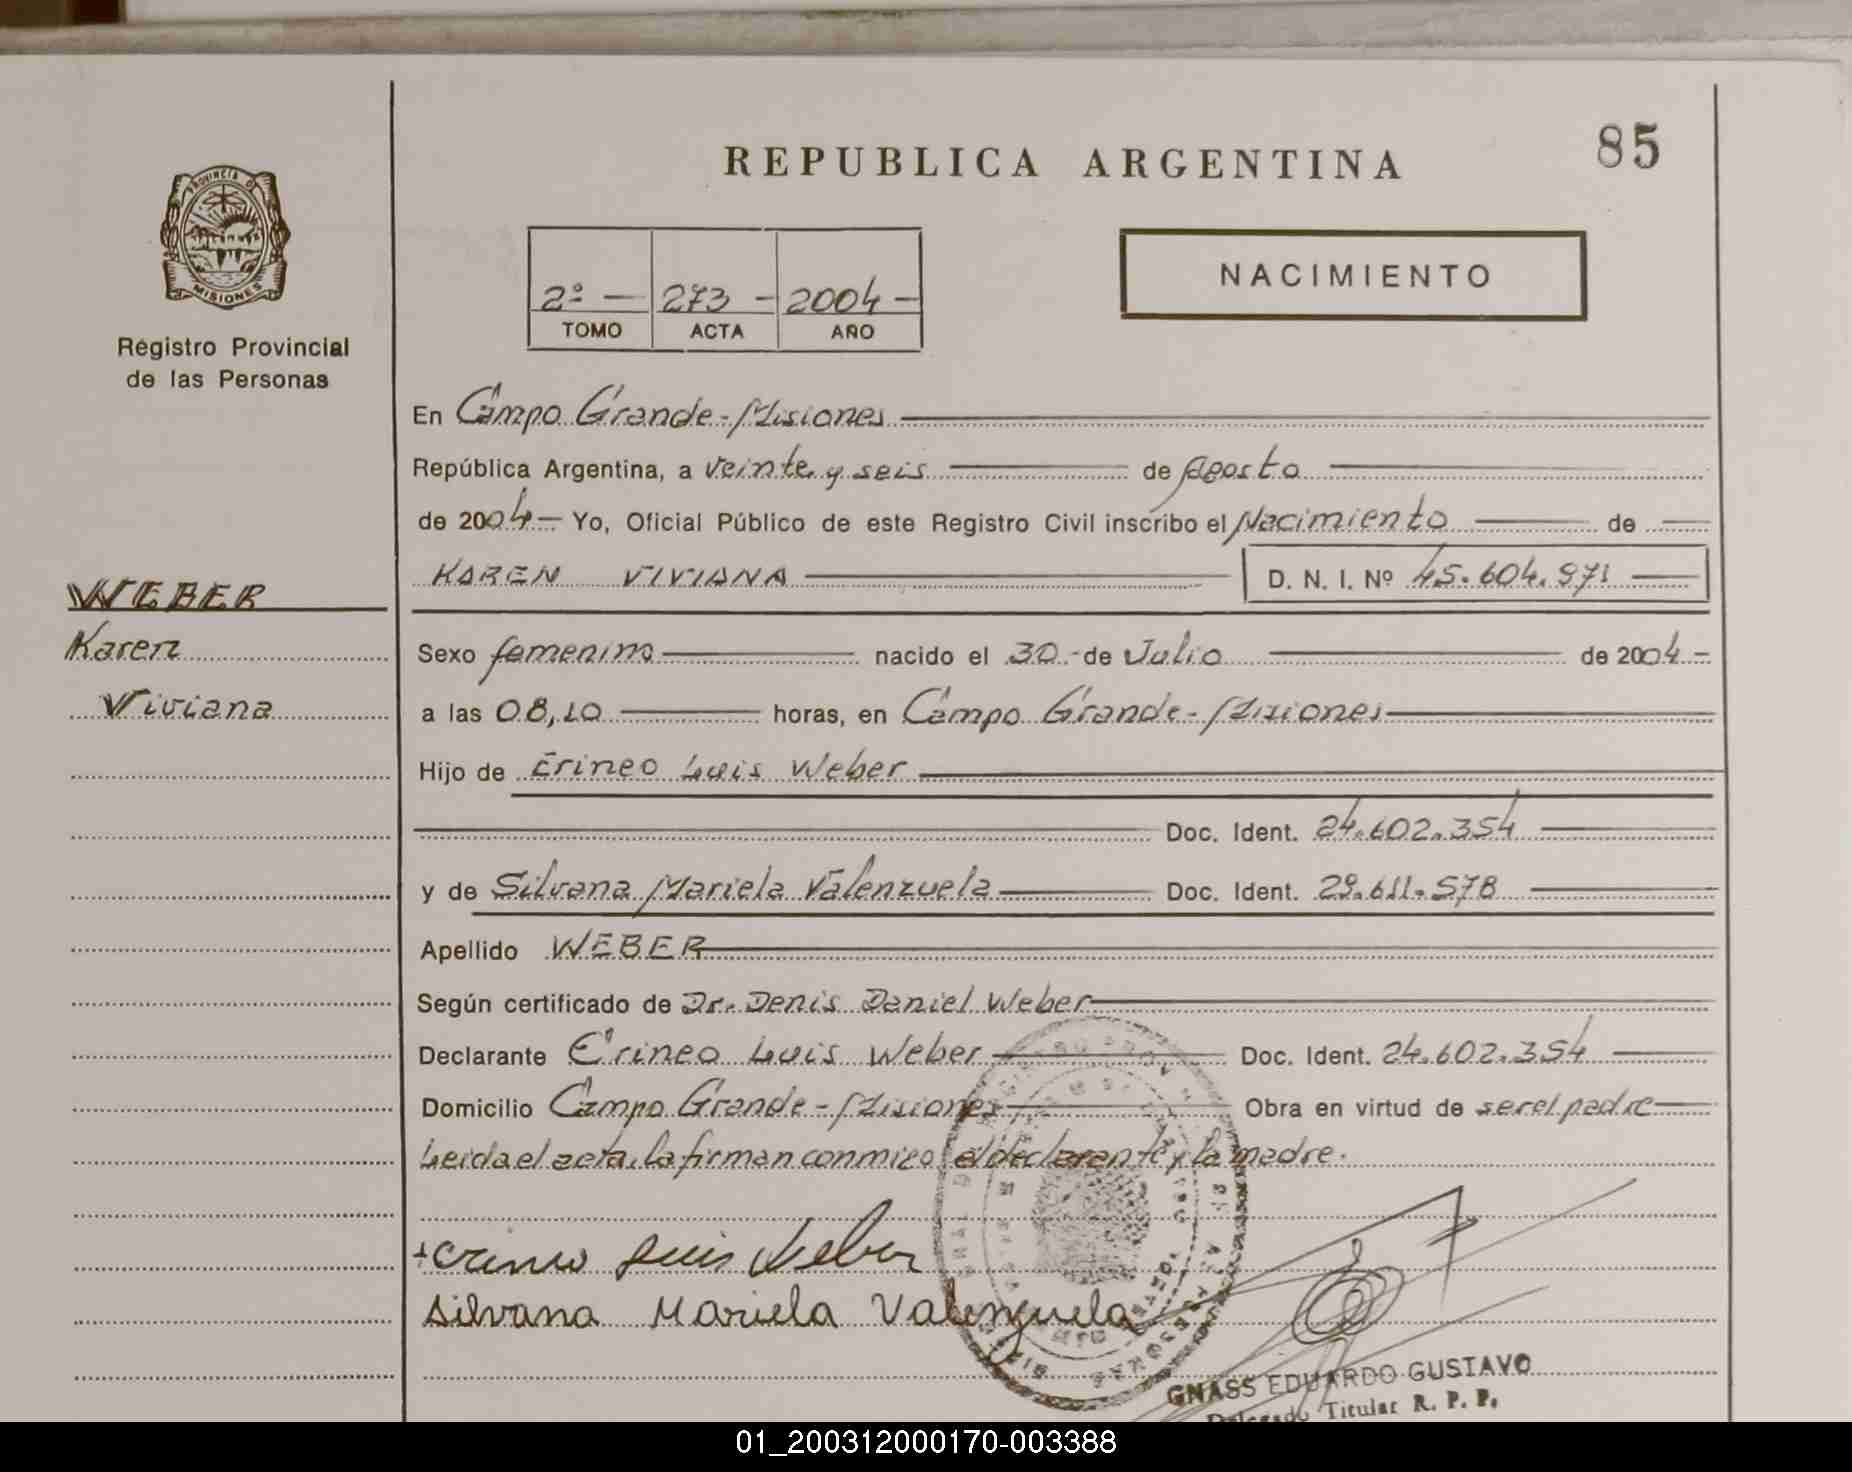 REPUBLICA ARGENTINA
85
PROVINCIA D
MISIONES
Registro Provincial
de las Personas
NACIMIENTO
2º — 273 - 2004 -
TOMO ACTA AÑO
En Campo Grande - Misiones
República Argentina, a veinte y seis de Agosto
de 2004 — Yo, Oficial Público de este Registro Civil inscribo el Nacimiento de
KAREN VIVIANA D. N. I. Nº 45.604.971
WEBER
Karen
Viviana
Sexo femenino nacido el 30 - de Julio de 2004 -
a las 08,10 horas, en Campo Grande - Misiones
Hijo de Erineo Luis Weber
Doc. Ident. 24.602.354
y de Silvana Mariela Valenzuela Doc. Ident. 29.611.578
Apellido WEBER
Según certificado de Dr. Denis Daniel Weber
Declarante Erineo Luis Weber Doc. Ident. 24.602.354
Domicilio Campo Grande - Misiones Obra en virtud de ser el padre
Leida el acta, la firman conmigo, el declarante y la madre.
Erineo Luis Weber
Silvana Mariela Valenzuela
GNASS EDUARDO GUSTAVO
Delegado Titular R. P. P.
01_200312000170-003388